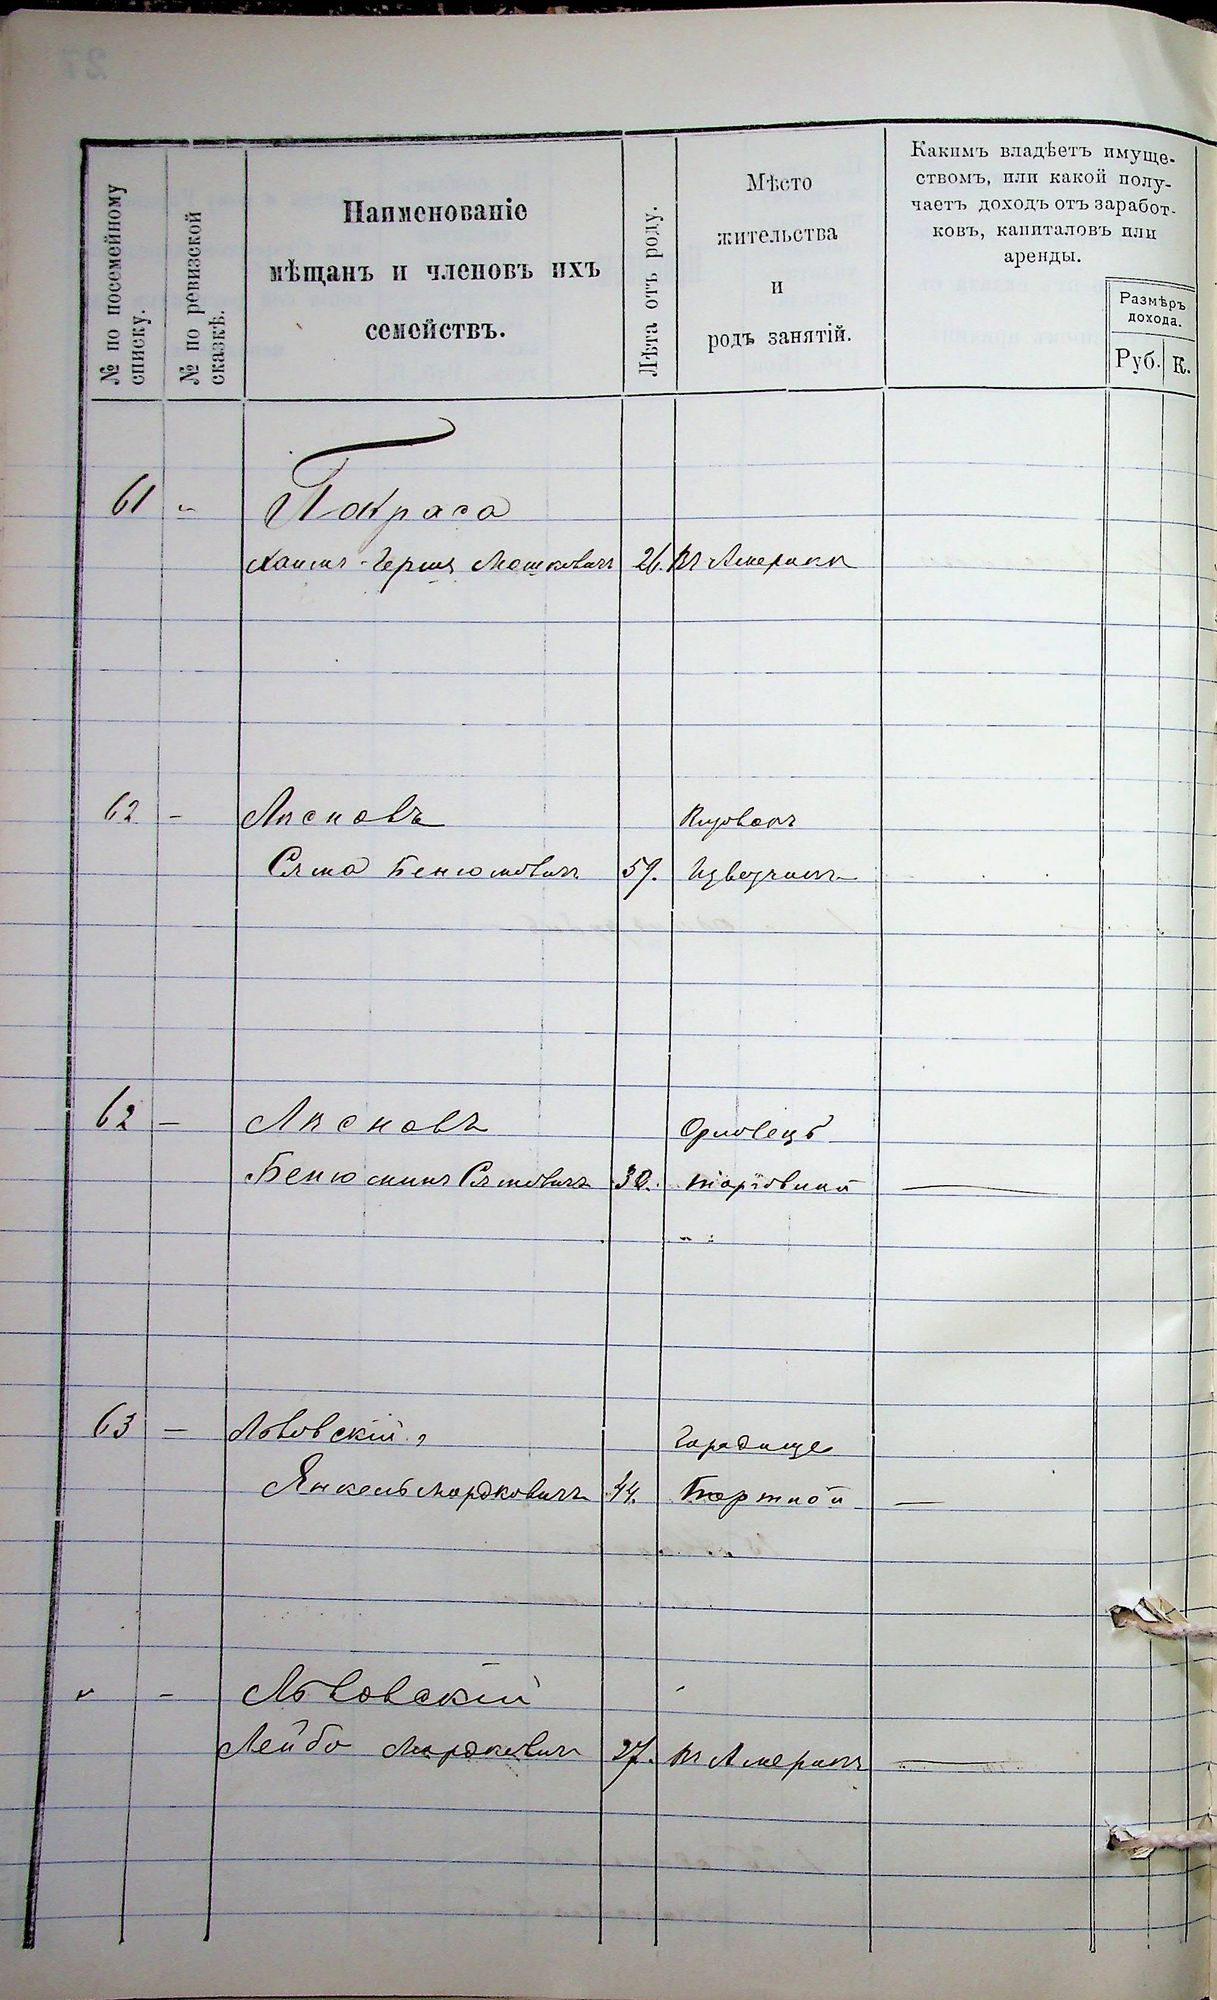 № по посемейному списку.
№ по ревизской сказкѣ.
Наименованіе
мѣщанъ и членовъ ихъ
семействъ.
Лѣта отъ роду.
Мѣсто
жительства
и
родъ занятій.
Какимъ владѣетъ имуще-
ствомъ, или какой полу-
чаетъ доходъ отъ заработ-
ковъ, капиталовъ или
аренды.
Размѣръ
дохода.
Руб. К.
61 Покраса
Хаимъ-Гершъ Мошковичъ 26. Въ Америкѣ
62 – Лѣсновъ
Сѫма Бенюмовичъ 59. Извозчикъ
62 – Лѣсновъ Орловецъ
Бенюминъ 30. торговыий
63 – Львовскій Городище
Янкель Мордковичъ 44. Портной —
" – Львовскій
Лейбо Мордковичъ 27. Въ Америкѣ —